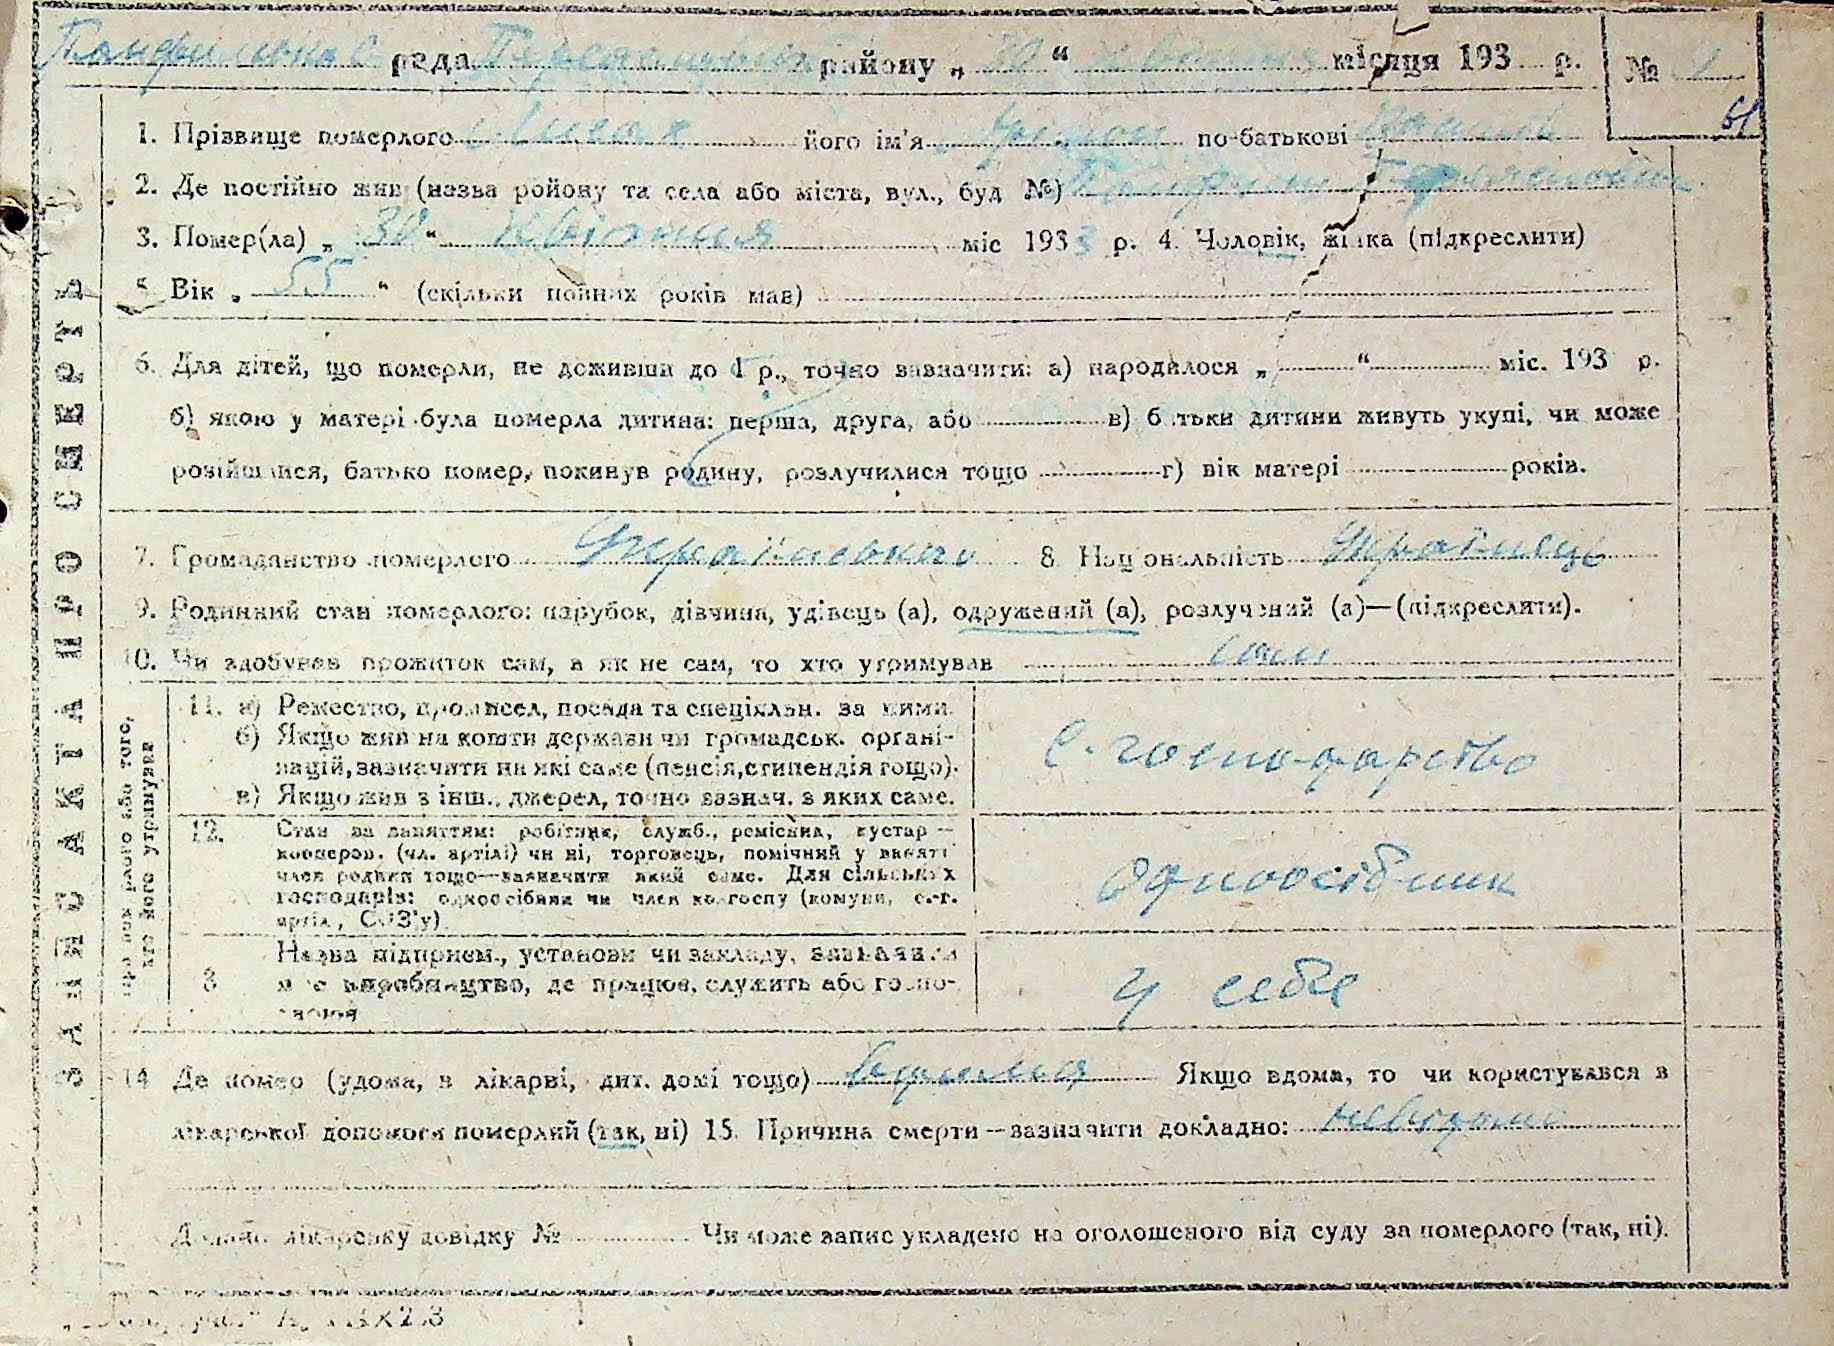 рада району „ 30 “ місяця 193 р. №
61
1. Прізвище померлого його ім'я по-батькові
2. Де постійно жив (назва району та села або міста, вул., буд №)
3. Помер(ла) „ 30 “ квітня міс 1933 р. 4. Чоловік, жінка (підкреслити)
5. Вік „ 55 “ (скільки повних років мав)
6. Для дітей, що померли, не доживши до 1 р., точно зазначити: а) народилося „ “ міс. 193 р.
б) якою у матері була померла дитина: перша, друга, або в) батьки дитини живуть укупі, чи може
розійшлися, батько помер, покинув родину, розлучилися тощо г) вік матері років.
7. Громадянство померлого Українського 8 Національність Українець
9. Родинний стан померлого: парубок, дівчина, удівець (а), одружений (а), розлучений (а)—(підкреслити).
10. Чи здобував прожиток сам, а як не сам, то хто утримував сам
11. а) Ремество, промисел, посада та спеціяльн. за ними.
б) Якщо жив на кошти держави чи громадськ. органі-
зацій, зазначити на які саме (пенсія, стипендія тощо).
в) Якщо жив з інш. джерел, точно зазнач. з яких саме.
С. господарство
12. Стан за заняттям: робітник, служб., ремісник, кустар —
кооперов. (чл. артілі) чи ні, торговець, помічний у занятті
член родини тощо—зазначити який саме. Для сільських
господарів: одноосібник чи член колгоспу (комуни, с.-г.
артіл, СОЗ'у)
одноосібник
3 Назва підприєм., установи чи закладу, зазначити
виробництво, де працює, служить або госпо-
у себе
14 Де помер (удома, в лікарні, дит. домі тощо) Якщо вдома, то чи користувався в
лікарської допомоги померлий (так, ні) 15. Причина смерти—зазначити докладно: невідомо
Додано лікарську довідку № Чи може запис укладено на оголошеного від суду за померлого (так, ні).
ЗАПИС АКТА ПРО СМЕРТЬ